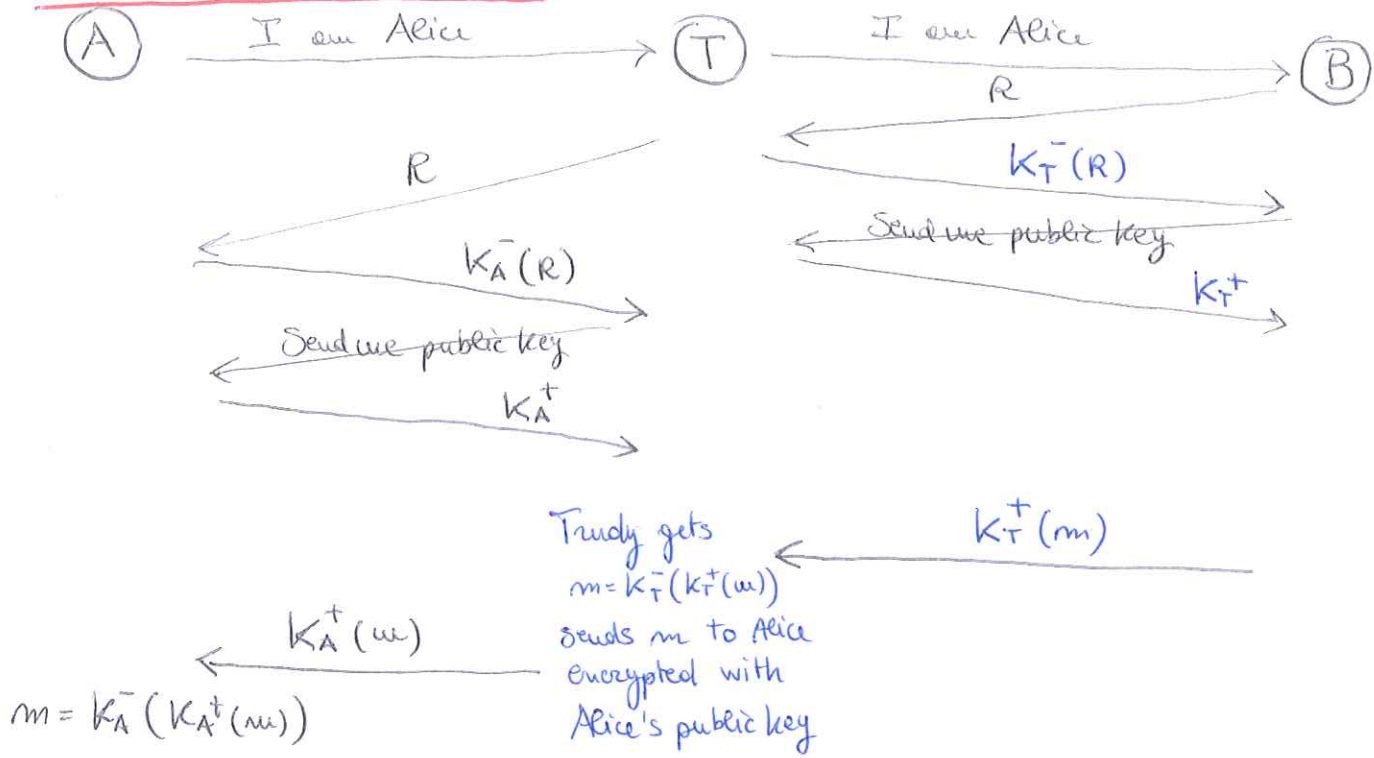 A
I am Alice
T
I am Alice
B
R
K_T^-(R)
R
Send me public key
K_A^-(R)
K_T^+
Send me public key
K_A^+
K_T^+(m)
Trudy gets
m=K_T^-(K_T^+(m))
sends m to Alice
encrypted with
Alice's public key
K_A^+(m)
m=K_A^-(K_A^+(m))